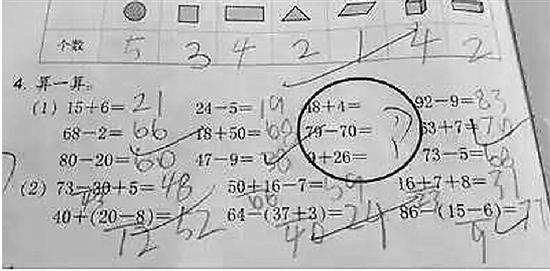 个数 5 3 4 2 1 4 2
4. 算一算。
(1) 15+6=21 24-5=19 48+4= 92-9=83
68-2=66 18+50=68 79-70= ? 63+7=70
80-20=60 47-9= 9+26= 73-5=68
(2) 73-30+5=48 50+16-7=59 16+7+8=31
40+(20-8)=52 64-(37+3)=24 86-(15-6)=77
12 40 9